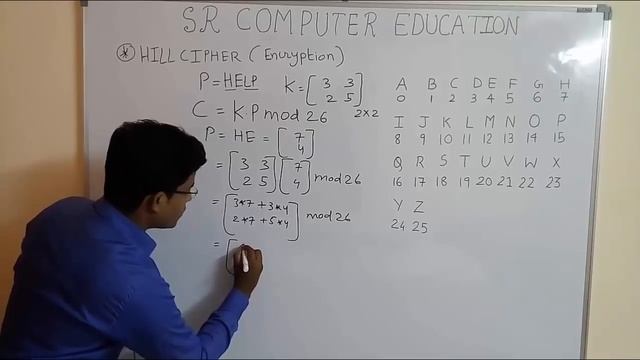 SR COMPUTER EDUCATION
* HILL CIPHER (Encryption)
P = HELP K = [3 3
2 5] 2×2
C = K.P mod 26
P = HE = [7
4]
= [3 3 [7
2 5] 4] mod 26
= [3*7 + 3*4
2*7 + 5*4] mod 26
= [
A B C D E F G H
0 1 2 3 4 5 6 7
I J K L M N O P
8 9 10 11 12 13 14 15
Q R S T U V W X
16 17 18 19 20 21 22 23
Y Z
24 25